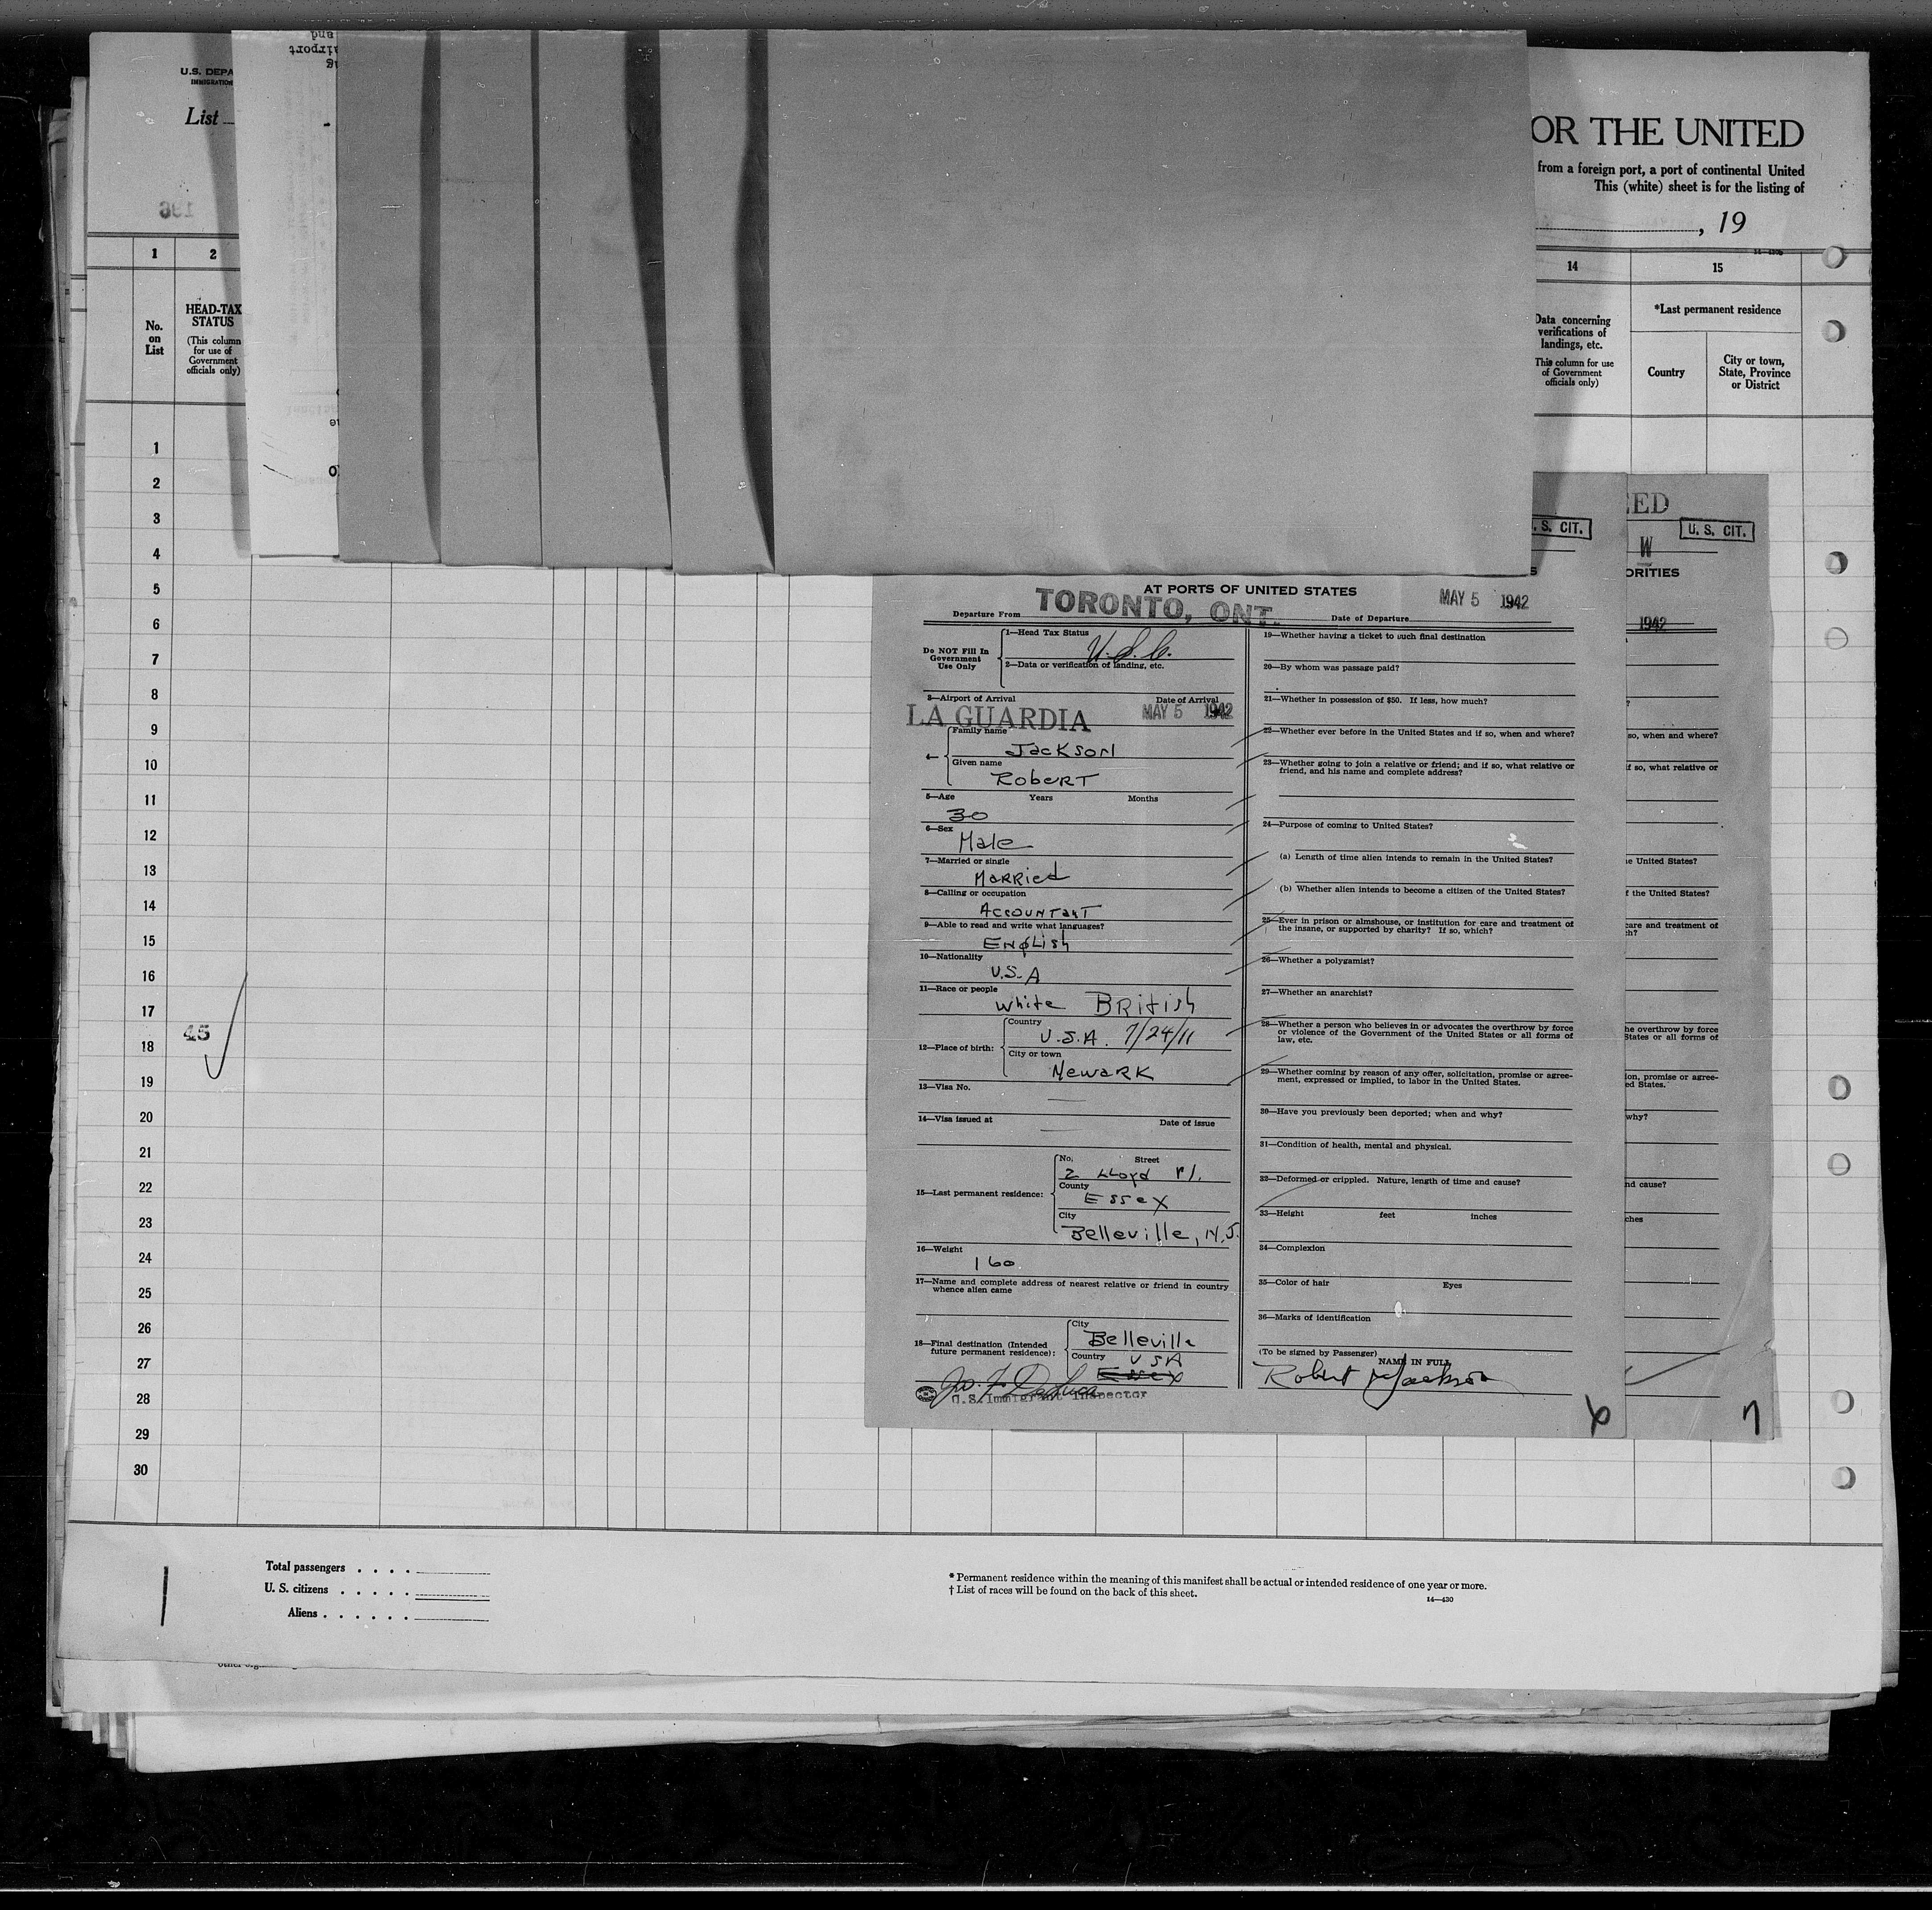 U.S. DEPA
IMMIGRATION
List
196
OR THE UNITED
from a foreign port, a port of continental United
This (white) sheet is for the listing of
, 19
1
2
14
15
No.
on
List
HEAD-TAX
STATUS
(This column
for use of
Government
officials only)
Data concerning
verifications of
landings, etc.
This column for use
of Government
officials only)
*Last permanent residence
Country
City or town,
State, Province
or District
1
2
3
4
5
6
7
8
9
10
11
12
13
14
15
16
17
45
18
19
20
21
22
23
24
25
26
27
28
29
30
. S. CIT.
AT PORTS OF UNITED STATES
Departure From TORONTO, ONT. Date of Departure MAY 5 1942
Do NOT Fill In
Government
Use Only
1—Head Tax Status
U.S.C.
2—Data or verification of landing, etc.
3—Airport of Arrival Date of Arrival
LA GUARDIA MAY 5 1942
4—
Family name
Jackson
Given name
Robert
5—Age Years Months
30
6—Sex
Male
7—Married or single
Married
8—Calling or occupation
Accountant
9—Able to read and write what languages?
English
10—Nationality
U.S.A
11—Race or people
White British
12—Place of birth:
Country
U.S.A. 7/24/11
City or town
Newark
13—Visa No.
14—Visa issued at Date of issue
15—Last permanent residence:
No. Street
2 Lloyd Pl.
County
Essex
City
Belleville, N.J.
16—Weight
160
17—Name and complete address of nearest relative or friend in country
whence alien came
18—Final destination (Intended
future permanent residence):
City
Belleville
Country USA
Essex
U.S. Immigrant Inspector
19—Whether having a ticket to such final destination
20—By whom was passage paid?
21—Whether in possession of $50. If less, how much?
22—Whether ever before in the United States and if so, when and where?
23—Whether going to join a relative or friend; and if so, what relative or
friend, and his name and complete address?
24—Purpose of coming to United States?
(a) Length of time alien intends to remain in the United States?
(b) Whether alien intends to become a citizen of the United States?
25—Ever in prison or almshouse, or institution for care and treatment of
the insane, or supported by charity? If so, which?
26—Whether a polygamist?
27—Whether an anarchist?
28—Whether a person who believes in or advocates the overthrow by force
or violence of the Government of the United States or all forms of
law, etc.
29—Whether coming by reason of any offer, solicitation, promise or agree-
ment, expressed or implied, to labor in the United States.
30—Have you previously been deported; when and why?
31—Condition of health, mental and physical.
32—Deformed or crippled. Nature, length of time and cause?
33—Height feet inches
34—Complexion
35—Color of hair Eyes
36—Marks of identification
(To be signed by Passenger)
NAME IN FULL
Robert Jackson
6
ED
U. S. CIT.
W
ORITIES
1942
?
so, when and where?
if so, what relative or
e United States?
f the United States?
care and treatment of
ch?
he overthrow by force
States or all forms of
ion, promise or agree-
ed States.
why?
nd cause?
ches
7
Total passengers . . . .
U. S. citizens . . . . .
Aliens . . . . . .
* Permanent residence within the meaning of this manifest shall be actual or intended residence of one year or more.
† List of races will be found on the back of this sheet.
14—430